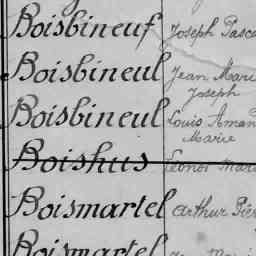 Boisbineuf Joseph Pasca
Boisbineul Jean Mari
Joseph
Boisbineul Louis Aman
Marie
Boishus Léonor Mari
Boismartel Arthur Pier
Boismartel